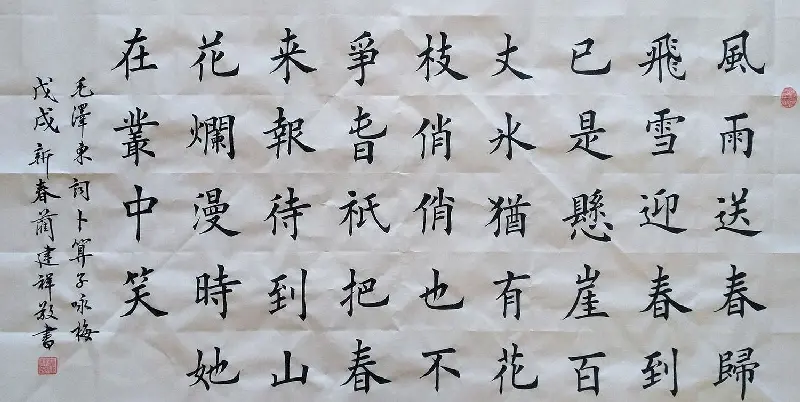 風雨送春歸
飛雪迎春到
已是懸崖百
丈氷猶有花
枝俏俏也不
爭旾祇把春
来報待到山
花爛漫時她
在叢中笑
毛澤東詞卜算子咏梅
戊戌新春藺建祥敬書